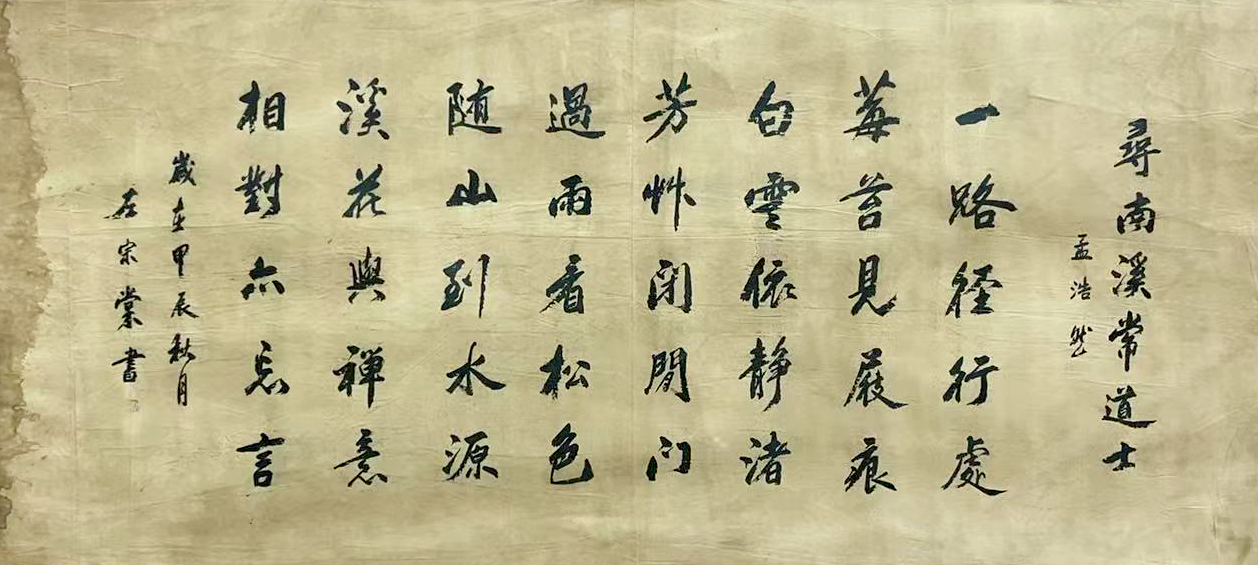 尋南溪常道士
孟浩然
一路径行處
莓苔見屐痕
白雲依靜渚
芳艸閉閒门
過雨看松色
随山到水源
溪花與禅意
相對亦忘言
歲在甲辰秋月
左宗棠書